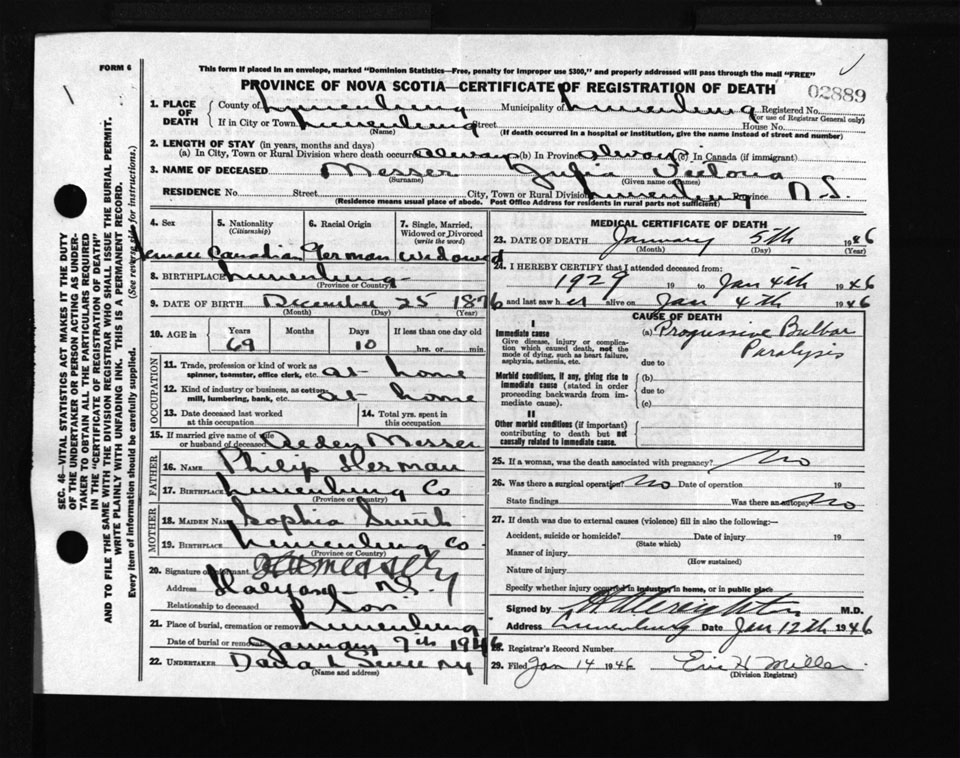 FORM 6
This form if placed in an envelope, marked "Dominion Statistics—Free, penalty for improper use $300," and properly addressed will pass through the mail "FREE"
PROVINCE OF NOVA SCOTIA—CERTIFICATE OF REGISTRATION OF DEATH
02889
1. PLACE OF DEATH
County of Lunenburg Municipality of Lunenburg Registered No.
(For use of Registrar General only)
If in City or Town Lunenburg Street House No.
(Name) (If death occurred in a hospital or institution, give the name instead of street and number)
2. LENGTH OF STAY (in years, months and days)
(a) In City, Town or Rural Division where death occurred always (b) In Province always (c) In Canada (if immigrant)
3. NAME OF DECEASED Messer Julia
(Surname) (Given name or names)
RESIDENCE No. Street City, Town or Rural Division Lunenburg Province N.S.
(Residence means usual place of abode. Post Office Address for residents in rural parts not sufficient)
4. Sex
Female
5. Nationality
(Citizenship)
Canadian
6. Racial Origin
German
7. Single, Married, Widowed or Divorced
(write the word)
Widowed
8. BIRTHPLACE Lunenburg
(Province or Country)
9. DATE OF BIRTH December 25 1876
(Month) (Day) (Year)
10. AGE in
Years Months Days If less than one day old
69 10 hrs. or min.
OCCUPATION
11. Trade, profession or kind of work as spinner, teamster, office clerk, etc. at home
12. Kind of industry or business, as cotton mill, lumbering, bank, etc. at home
13. Date deceased last worked at this occupation
14. Total yrs. spent in this occupation
15. If married give name of wife or husband of deceased Messer
FATHER
16. NAME Philip Herman
17. BIRTHPLACE Lunenburg Co
(Province or Country)
MOTHER
18. MAIDEN NAME Sophia Smith
19. BIRTHPLACE Lunenburg Co.
(Province or Country)
20. Signature of informant
Address N.S.
Relationship to deceased Son
21. Place of burial, cremation or removal Lunenburg
Date of burial or removal January 7th 1946
22. UNDERTAKER
(Name and address)
MEDICAL CERTIFICATE OF DEATH
23. DATE OF DEATH January 5th 1946
(Month) (Day) (Year)
24. I HEREBY CERTIFY that I attended deceased from:
1929 19 to Jan 4th 1946
and last saw her alive on Jan 4th 1946
CAUSE OF DEATH
I
Immediate cause
Give disease, injury or complication which caused death, not the mode of dying, such as heart failure, asphyxia, asthenia, etc.
(a) Progressive Bulbar Paralysis
due to
Morbid conditions, if any, giving rise to immediate cause (stated in order proceeding backwards from immediate cause).
(b)
due to
(c)
II
Other morbid conditions (if important) contributing to death but not causally related to immediate cause.
25. If a woman, was the death associated with pregnancy? No
26. Was there a surgical operation? No Date of operation 19
State findings Was there an autopsy? No
27. If death was due to external causes (violence) fill in also the following:—
Accident, suicide or homicide? Date of injury 19
(State which)
Manner of injury
(How sustained)
Nature of injury
Specify whether injury occurred in industry, in home, or in public place
Signed by Creighton M.D.
Address Lunenburg Date Jan 12th 1946
28. Registrar's Record Number
29. Filed Jan 14 1946 Eric H Miller
(Division Registrar)
SEC. 46—VITAL STATISTICS ACT MAKES IT THE DUTY
OF THE UNDERTAKER OR PERSON ACTING AS UNDER-
TAKER TO OBTAIN ALL THE PARTICULARS REQUIRED
IN THE "CERTIFICATE OF REGISTRATION OF DEATH"
AND TO FILE THE SAME WITH THE DIVISION REGISTRAR WHO SHALL ISSUE THE BURIAL PERMIT.
WRITE PLAINLY WITH UNFADING INK. THIS IS A PERMANENT RECORD.
Every item of information should be carefully supplied. (See reverse side for instructions.)